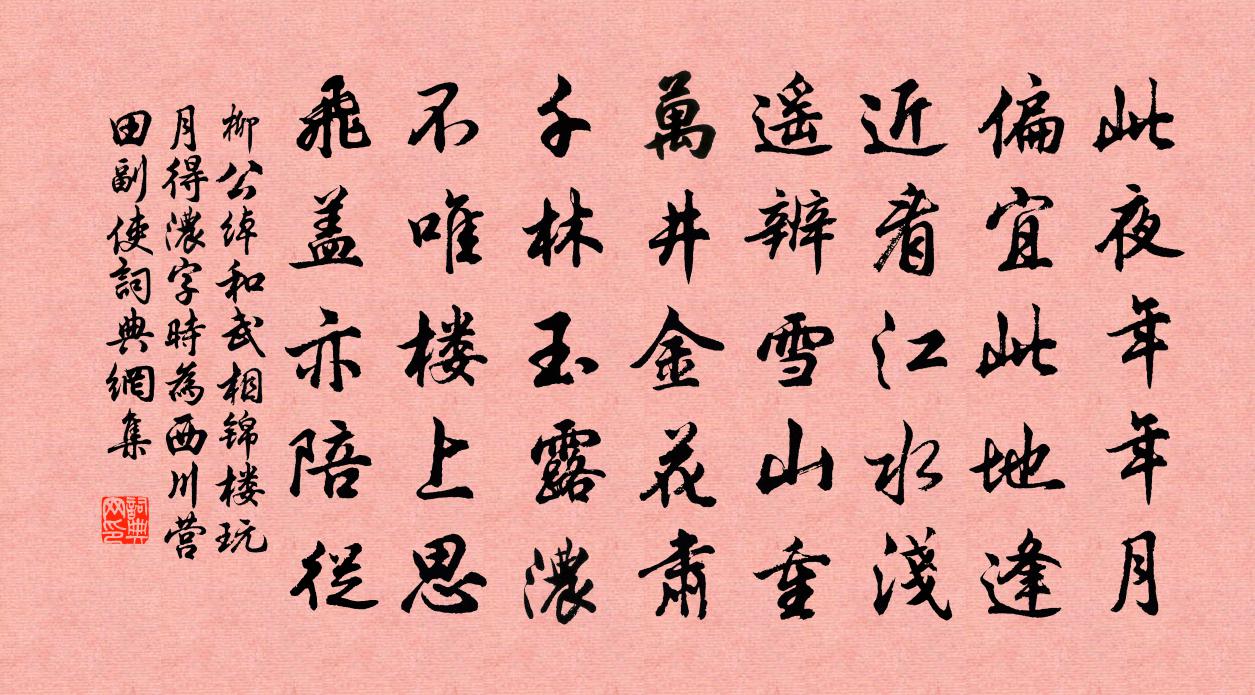 此夜年年月
偏宜此地逢
近看江水淺
遥辨雪山重
萬井金花肅
千林玉露濃
不唯楼上思
飛盖亦陪從
柳公綽和武相锦楼玩
月得濃字時為西川营
田副使詞典網集
詞典
网印